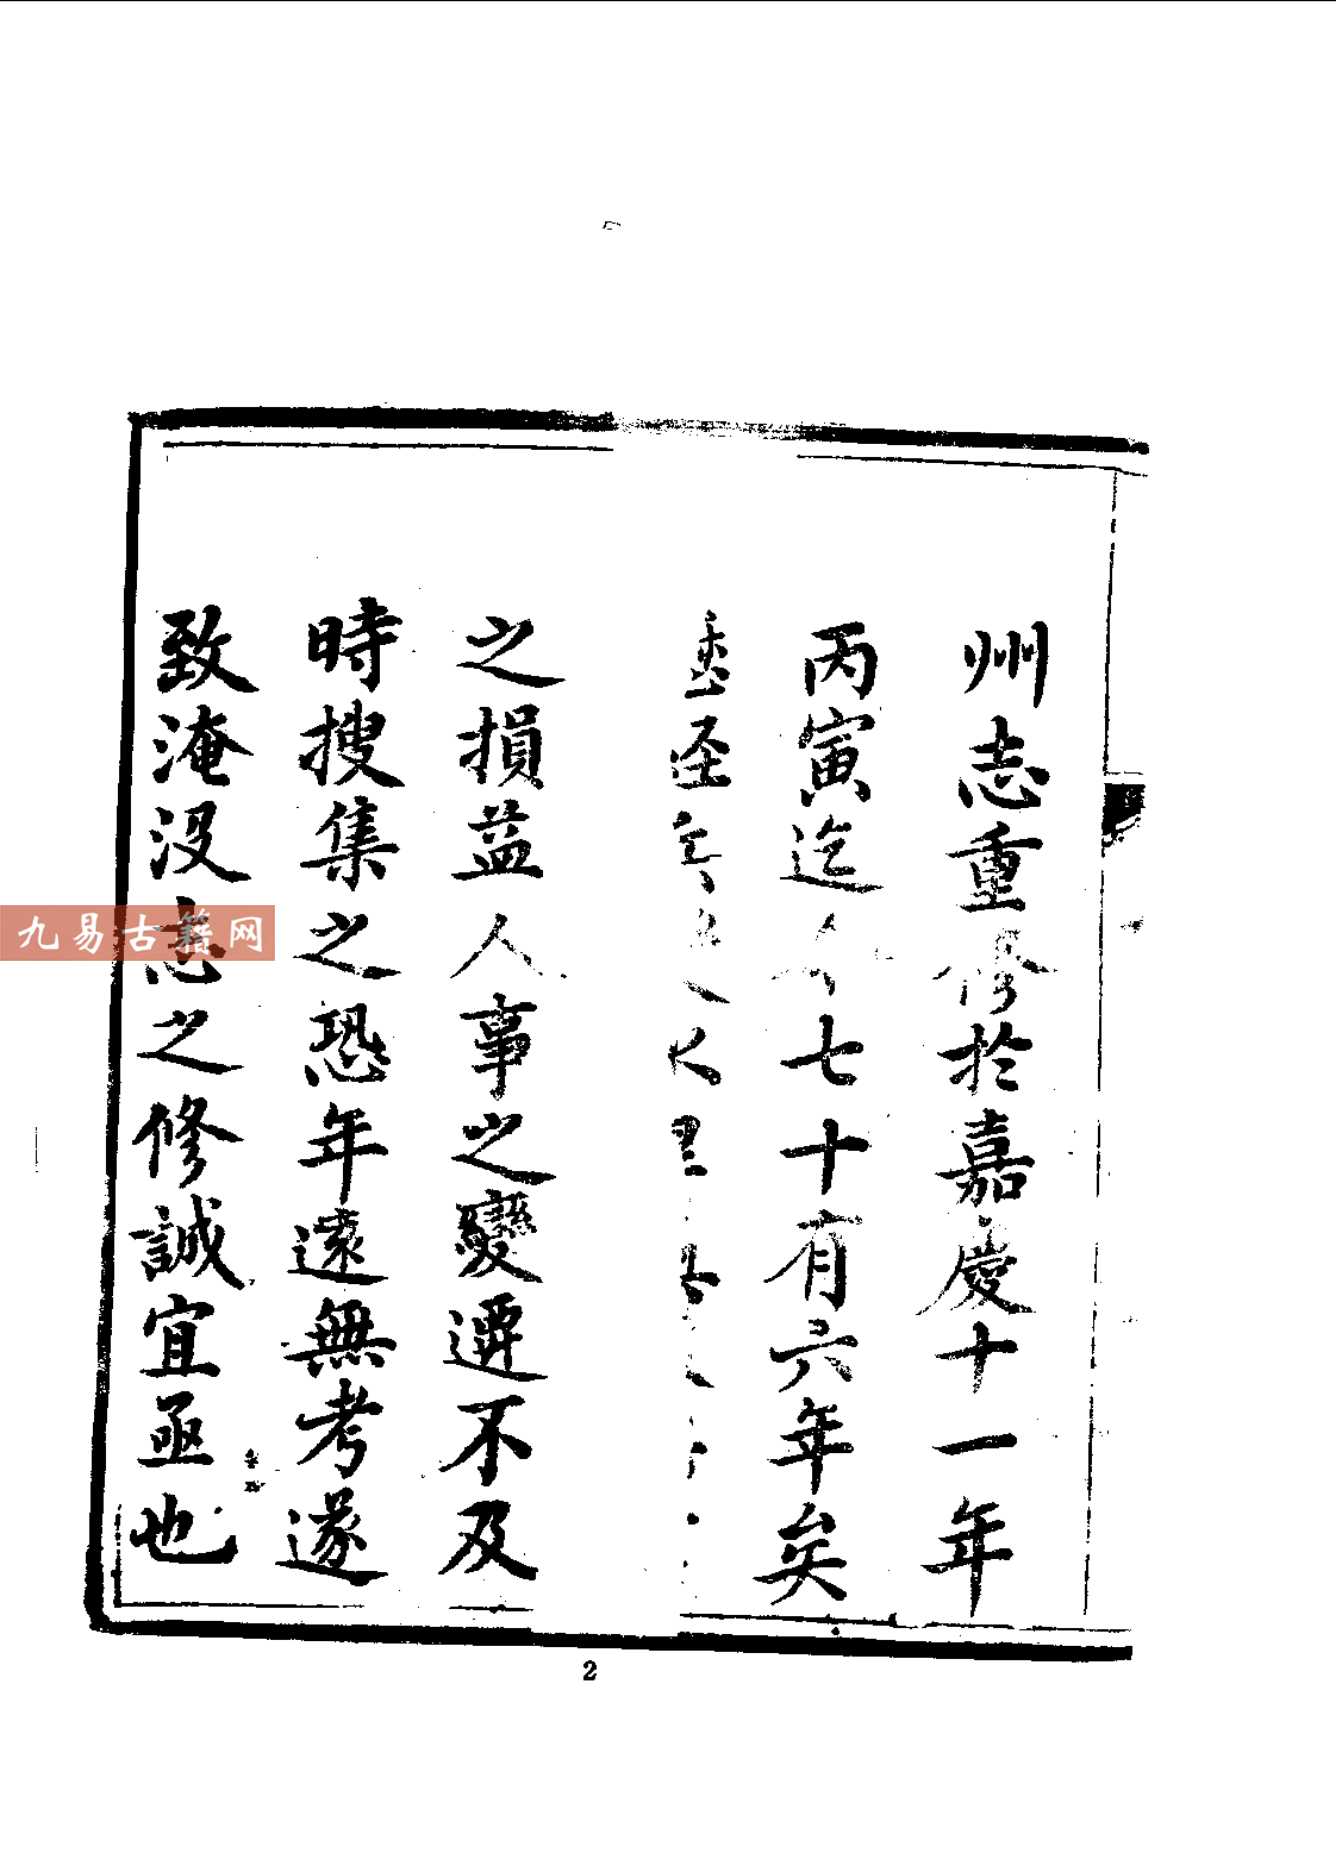 州志重修於嘉慶十一年
丙寅迄今七十有六年矣
之損益人事之變遷不及
時搜集之恐年遠無考遂
致淹沒志之修誠宜亟也
九易古籍网
2